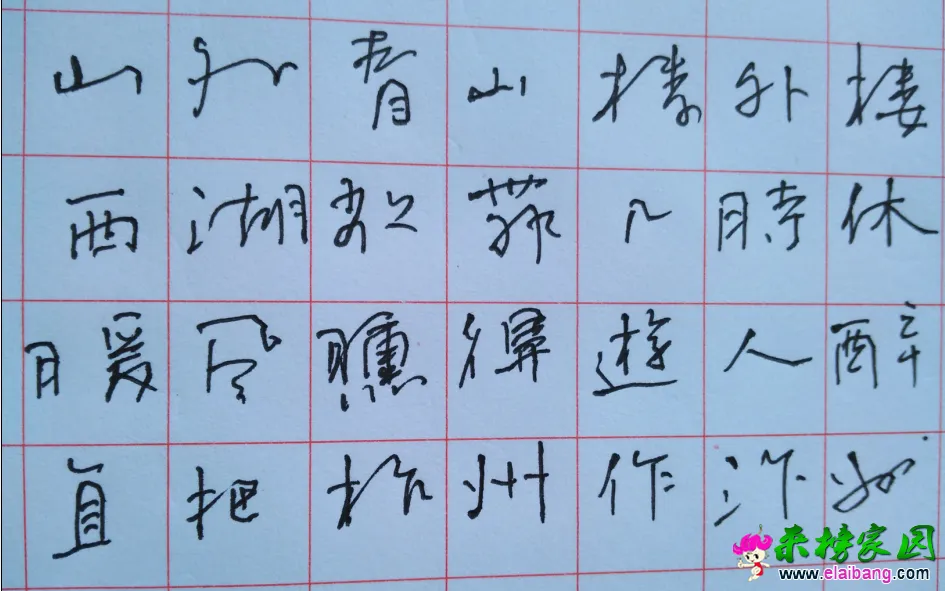 山外青山樓外楼
西湖歌舞几時休
暖风曛得遊人醉
直把杭州作汴州
来榜家园
www.elaibang.com